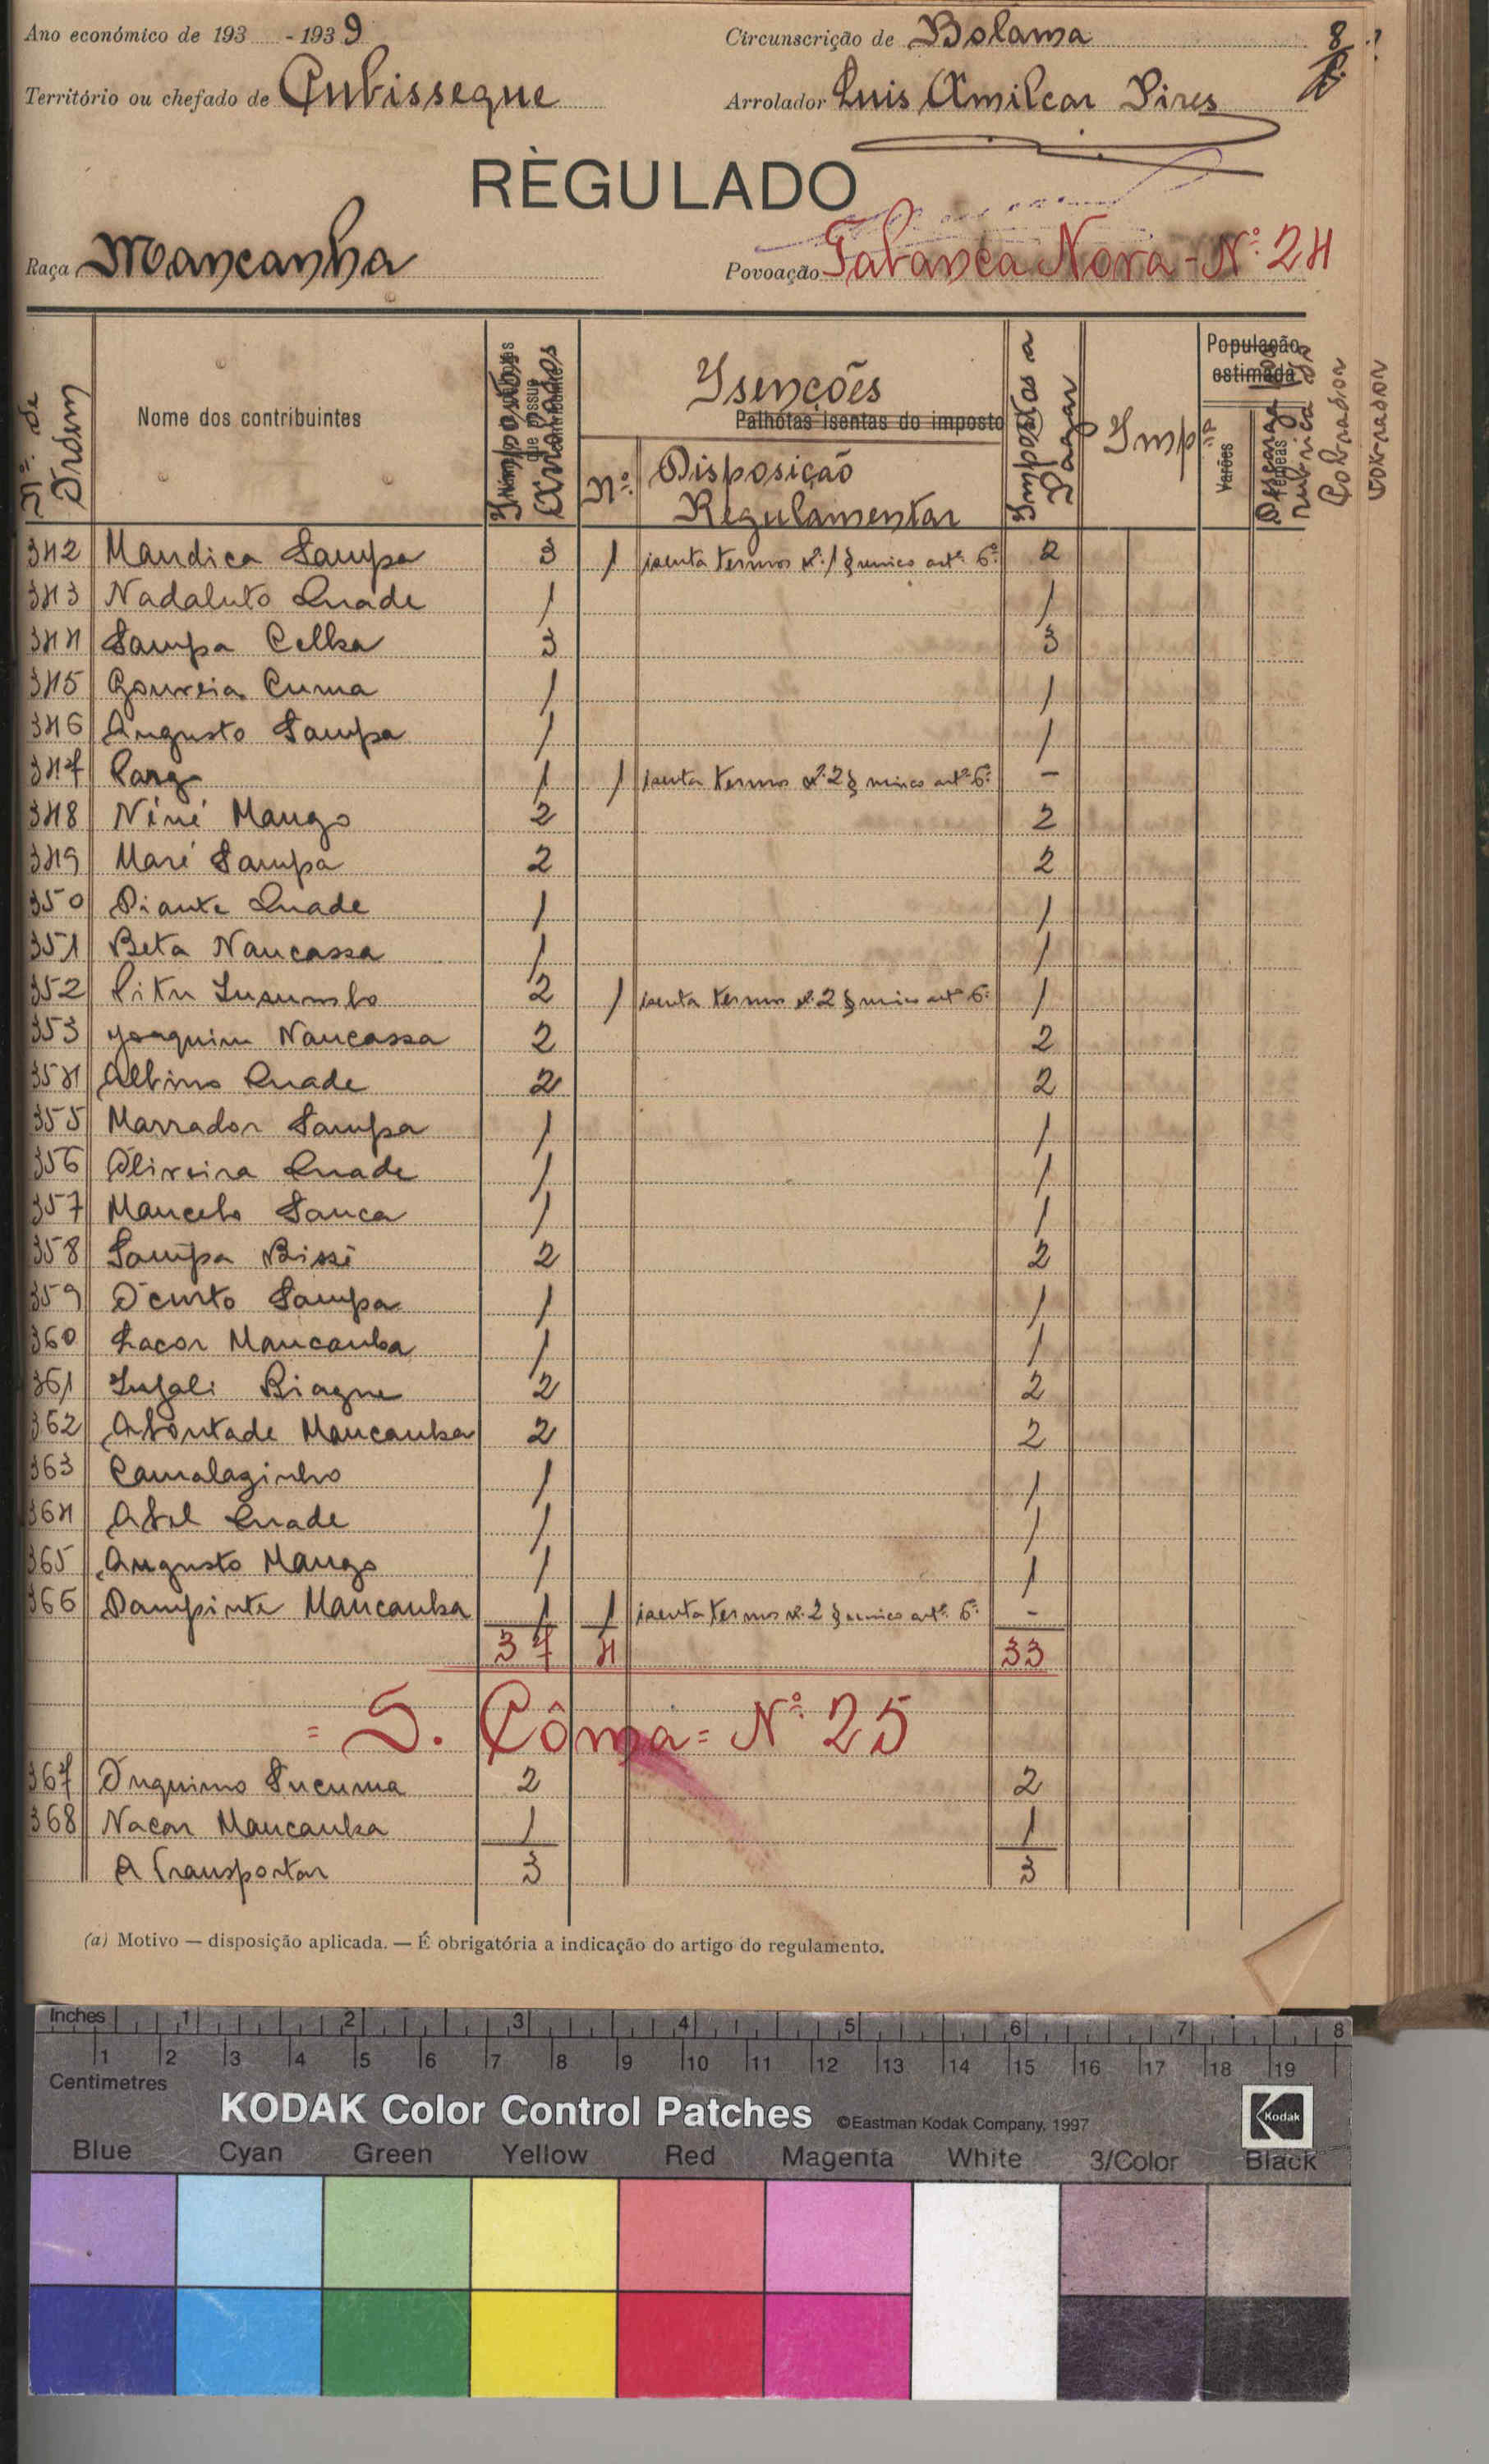 Ano económico de 193 - 1939
Circunscrição de Bolama
8
Território ou chefado de Cubisseque
Arrolador Luis Amilcar Pires
RÈGULADO
Raça Mancanha
Povoação Tabanca Nova - Nº 24
Nº. de Ordem
Nome dos contribuintes
Impostos Arrolados
Isenções
Palhótas isentas do imposto
Nº.
Disposição Regulamentar
Impostos a Pagar
Imp
População estimada
Varões
Fêmeas
Descarga
rubrica do
Cobrador
Cobrador
342 Mandica Sampa 3 1 isenta termos nº. 1 § unico artº. 6º. 2
343 Nadaluto Quade 1 1
344 Sampa Celba 3 3
345 Gouveia Cuma 1 1
346 Augusto Sampa 1 1
347 1 1 isenta termos nº. 2 § unico artº. 6º. -
348 Niné Mango 2 2
349 Maré Sampa 2 2
350 Diante Quade 1 1
351 Beta Nancassa 1 1
352 Pitu 2 1 isenta termos nº. 2 § unico artº. 6º. 1
353 Joaquim Nancassa 2 2
354 Albino Quade 2 2
355 Marrador Sampa 1 1
356 Oliveira Quade 1 1
357 Marcelo Sanca 1 1
358 Sampa Bissé 2 2
359 D'curto Sampa 1 1
360 Lacor Mancanha 1 1
361 Injali Biague 2 2
362 Abontade Mancanha 2 2
363 Camalaginho 1 1
364 Abel Quade 1 1
365 Augusto Mango 1 1
366 Dampinte Mancanha 1 1 isenta termos nº. 2 § unico artº. 6º. -
37 4 33
= S. Côma = Nº. 25
367 Sucuma 2 2
368 Nacar Mancanha 1 1
A Transportar 3 3
(a) Motivo — disposição aplicada. — É obrigatória a indicação do artigo do regulamento.
Inches 1 2 3 4 5 6 7 8
1 2 3 4 5 6 7 8 9 10 11 12 13 14 15 16 17 18 19
Centimetres
KODAK Color Control Patches ©Eastman Kodak Company, 1997
Kodak
Blue Cyan Green Yellow Red Magenta White 3/Color Black